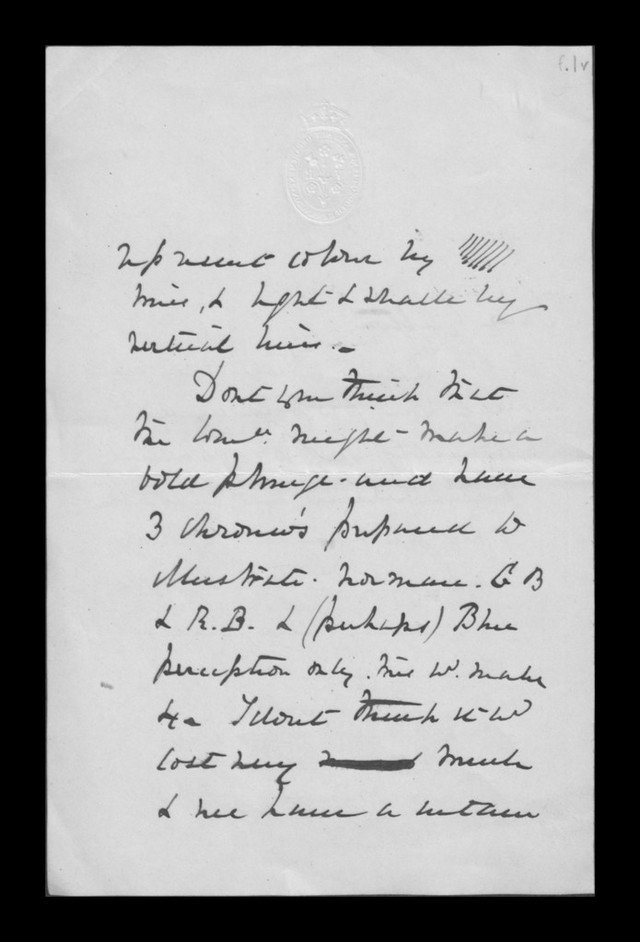 f.1v
represent colour by
lines, & light & shade by
vertical lines. –
Dont you think that
the Comee. might make a
bold plunge and have
3 chromo's prepared to
illustrate. Normal. G B
& R. B. & (perhaps) Blue
perception only. This wd. make
4 – I dont think it wd
cost very much
& we have a certain